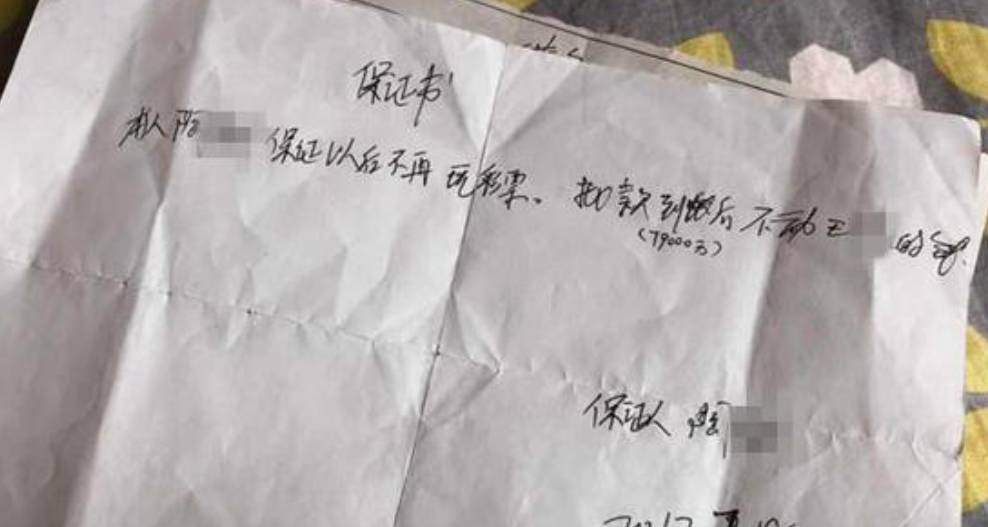 保证书
本人陈 保证以后不再玩彩票。款到账后不动王 的钱.
(79000元)
保证人
2017年